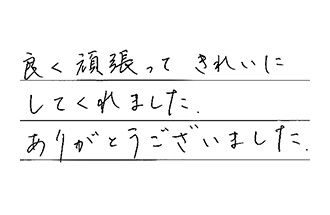 良く頑張って きれいに
してくれました.
ありがとうございました.